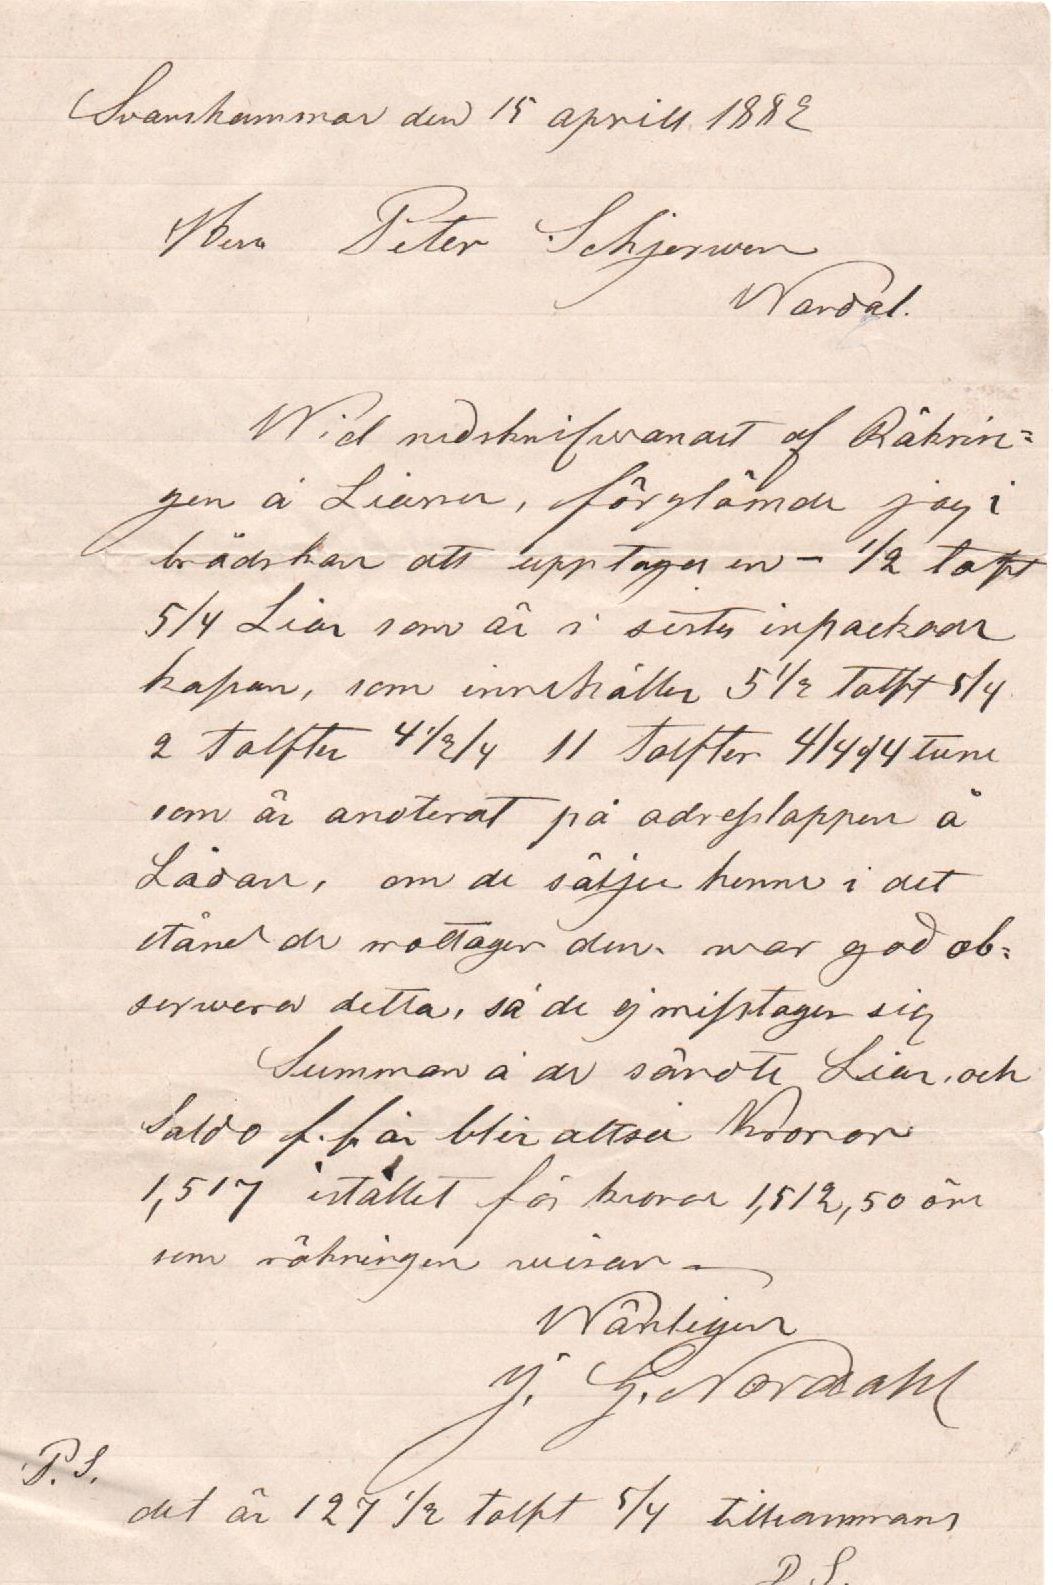 Svanshammar den 15 aprill. 1882
Herr Peter Schjerwen
Wardal.
Wid nedskrifwandet af Räknin=
gen å Liarna, förglömde jag i
brådskan att upptaga en – 1/2 tolft
5/4 Liar som är i sista inpackade
kapan, som innehåller 5 1/2 tolft 5/4
2 tolfter 4 1/2/4 11 tolfter 4/4
som är anoterat på adresslappen å
Lådan, om de säljer henne i det
stånd de mottager den. war god ob=
serwera detta, så de ej misstager sig
Summan å de sände Liar, och
Saldo f. f. år blir altså Kronor
1,517 istället för kronor 1,512,50 öre
som räkningen wisar –
Wänligen
J. G. Nordahl
P.S.
det är 127 1/2 tolft 5/4 tillsammans
D. S.